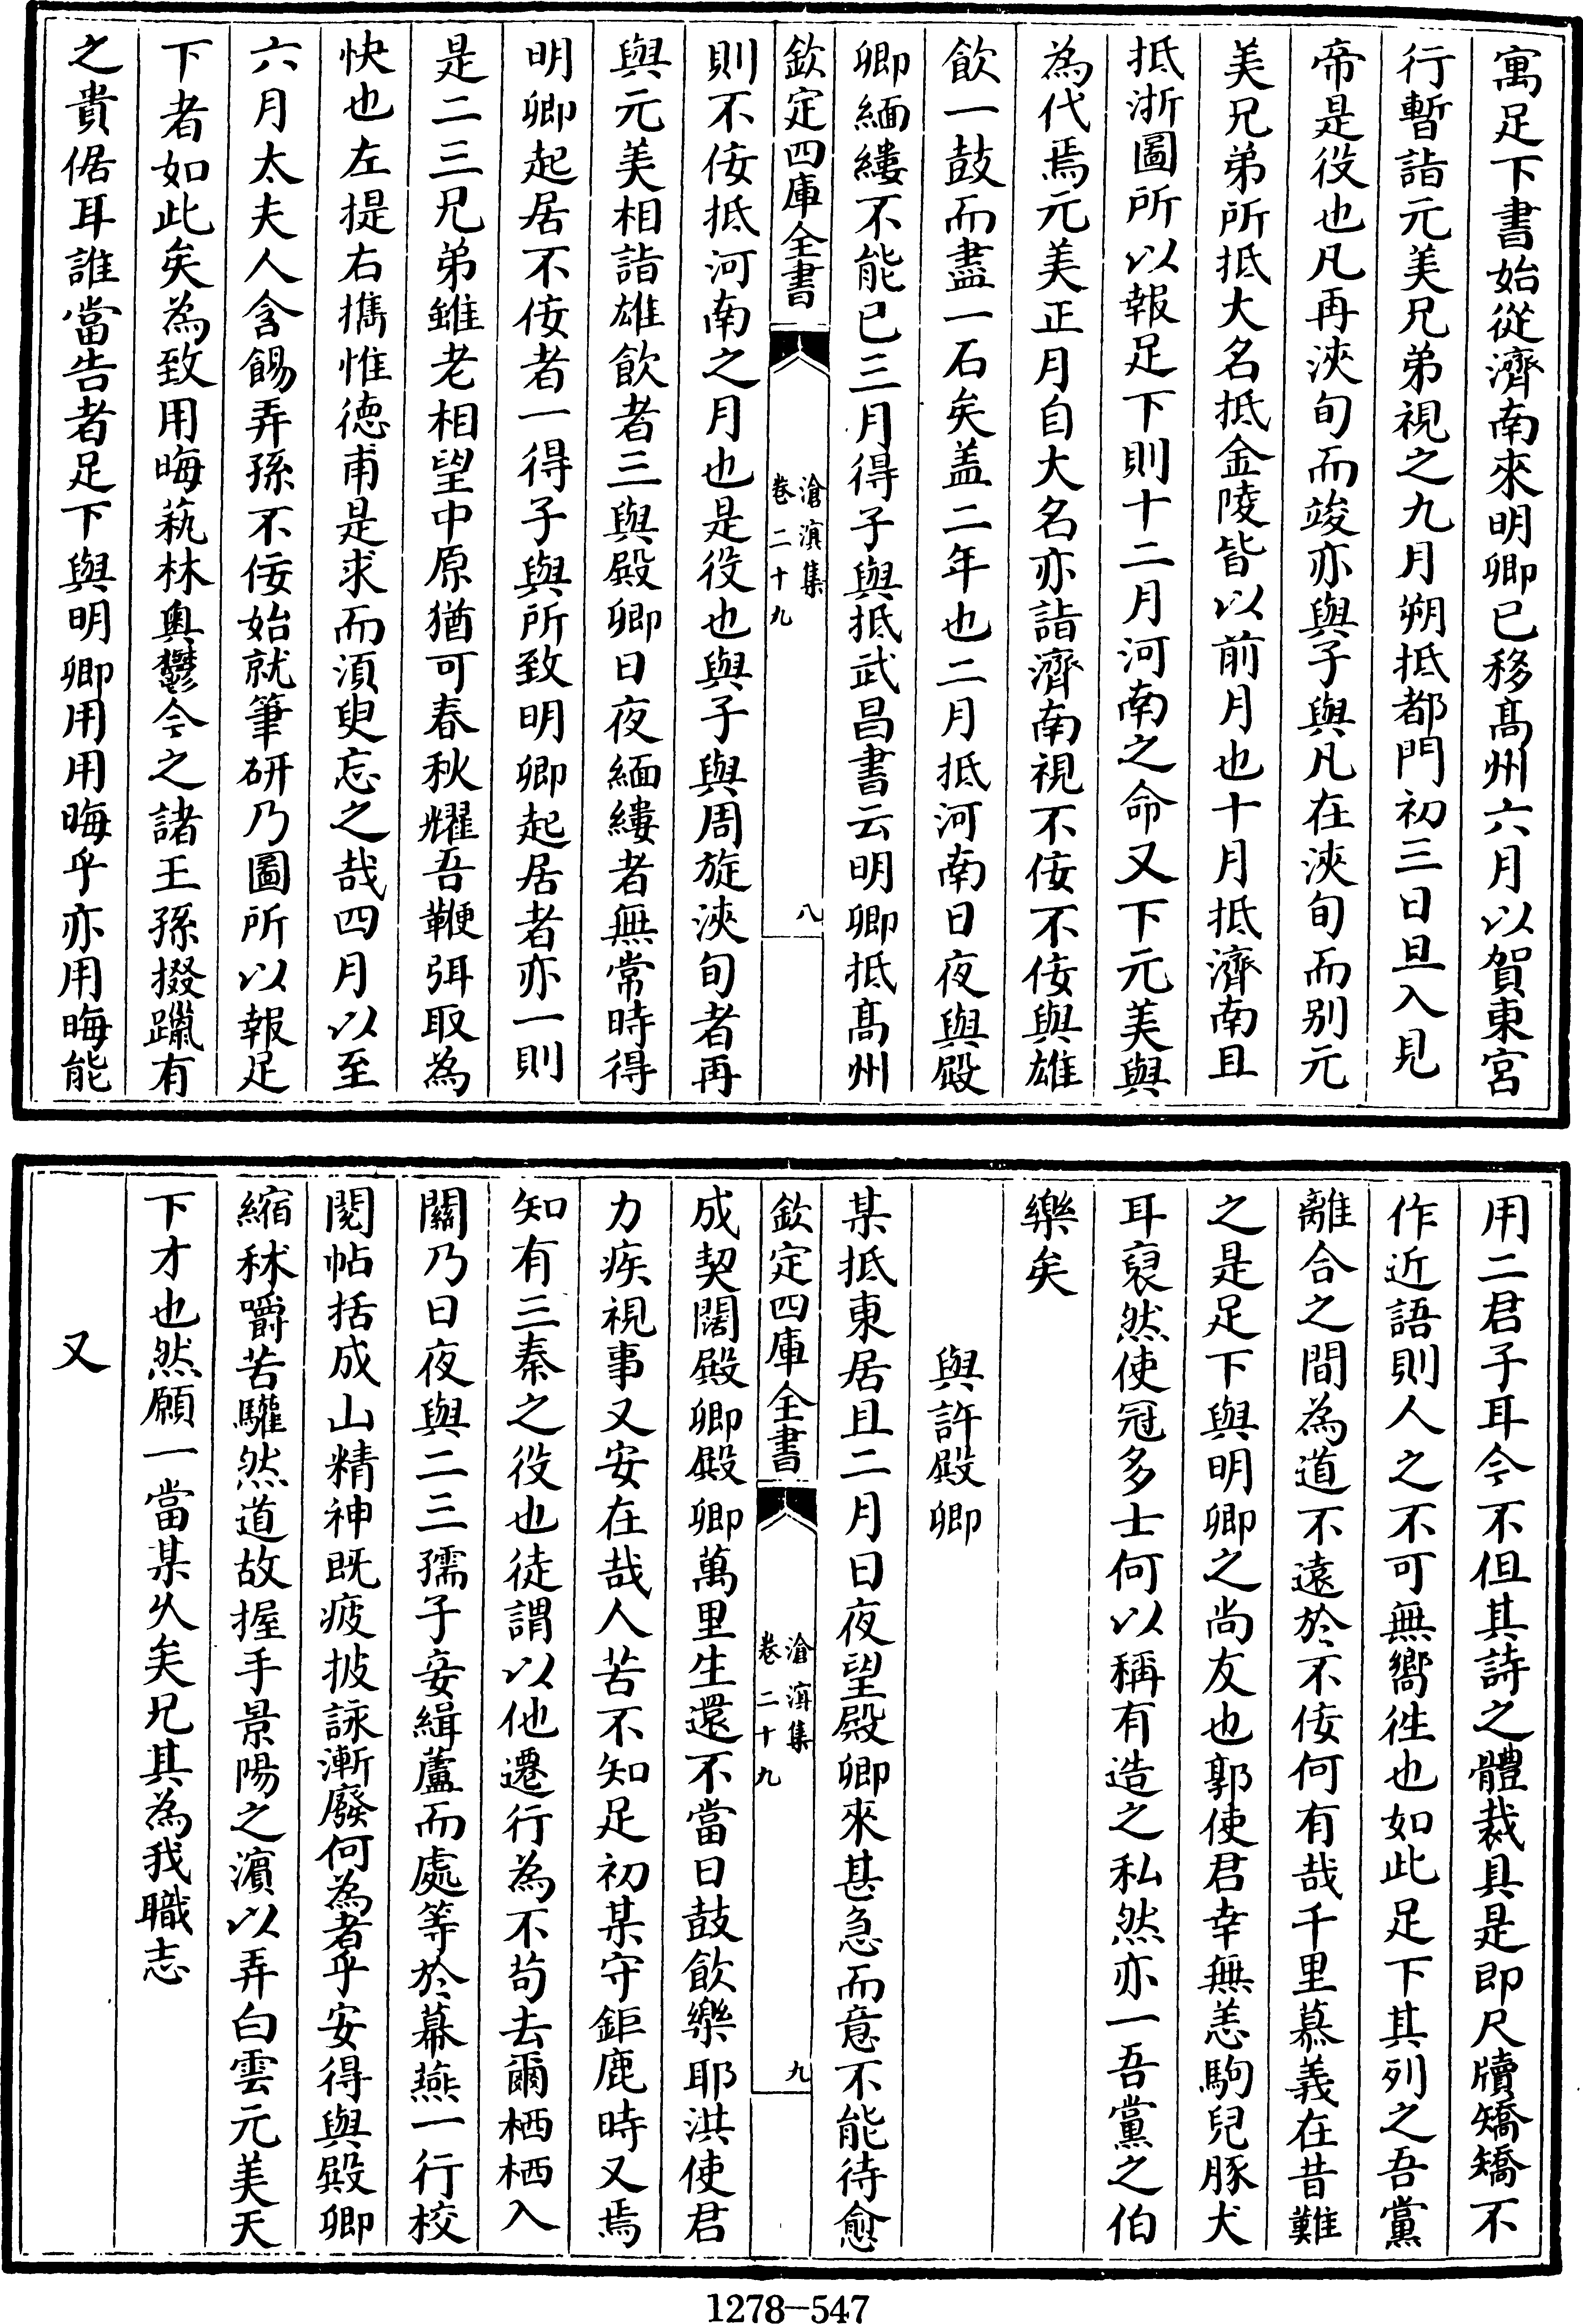 寓足下書始從濟南來明卿已移髙州六月以賀東宮
行暫詣元美兄弟視之九月朔抵都門初三日旦入見
帝是役也凡再浹旬而竣亦與子與凡在浹旬而别元
美兄弟所抵大名抵金陵皆以前月也十月抵濟南且
抵浙圖所以報足下則十二月河南之命又下元美與
為代焉元美正月自大名亦詣濟南視不佞不佞與雄
飲一鼓而盡一石矣盖二年也二月抵河南日夜與殿
卿緬縷不能已三月得子與抵武昌書云明卿抵髙州
欽定四庫全書
滄溟集
卷二十九
八
則不佞抵河南之月也是役也與子與周旋浹旬者再
與元美相詣雄飲者三與殿卿日夜緬縷者無常時得
明卿起居不佞者一得子與所致明卿起居者亦一則
是二三兄弟雖老相望中原猶可春秋耀吾鞭弭取為
快也左提右擕惟徳甫是求而湏臾忘之哉四月以至
六月太夫人含餳弄孫不佞始就筆研乃圖所以報足
下者如此矣為致用晦蓺林奥鬱今之諸王孫掇躐有
之貴倨耳誰當告者足下與明卿用用晦乎亦用晦能
用二君子耳今不但其詩之體裁具是即尺牘矯矯不
作近語則人之不可無嚮徃也如此足下其列之吾黨
離合之間為道不遠於不佞何有哉千里慕義在昔難
之是足下與明卿之尚友也郭使君幸無恙駒兒豚犬
耳裒然使冠多士何以稱有造之私然亦一吾黨之伯
樂矣
與許殿卿
某抵東居且二月日夜望殿卿來甚急而意不能待愈
欽定四庫全書
滄溟集
卷二十九
九
成契闊殿卿殿卿萬里生還不當日鼓飲樂耶洪使君
力疾視事又安在哉人苦不知足初某守鉅鹿時又焉
知有三秦之役也徒謂以他遷行為不茍去爾栖栖入
關乃日夜與二三孺子妄緝蘆而處等於幕燕一行校
閱帖括成山精神既疲披詠漸廢何為者乎安得與殿卿
縮秫嚼苦驩然道故握手景陽之濵以弄白雲元美天
下才也然願一當某乆矣兄其為我職志
又
1278—547